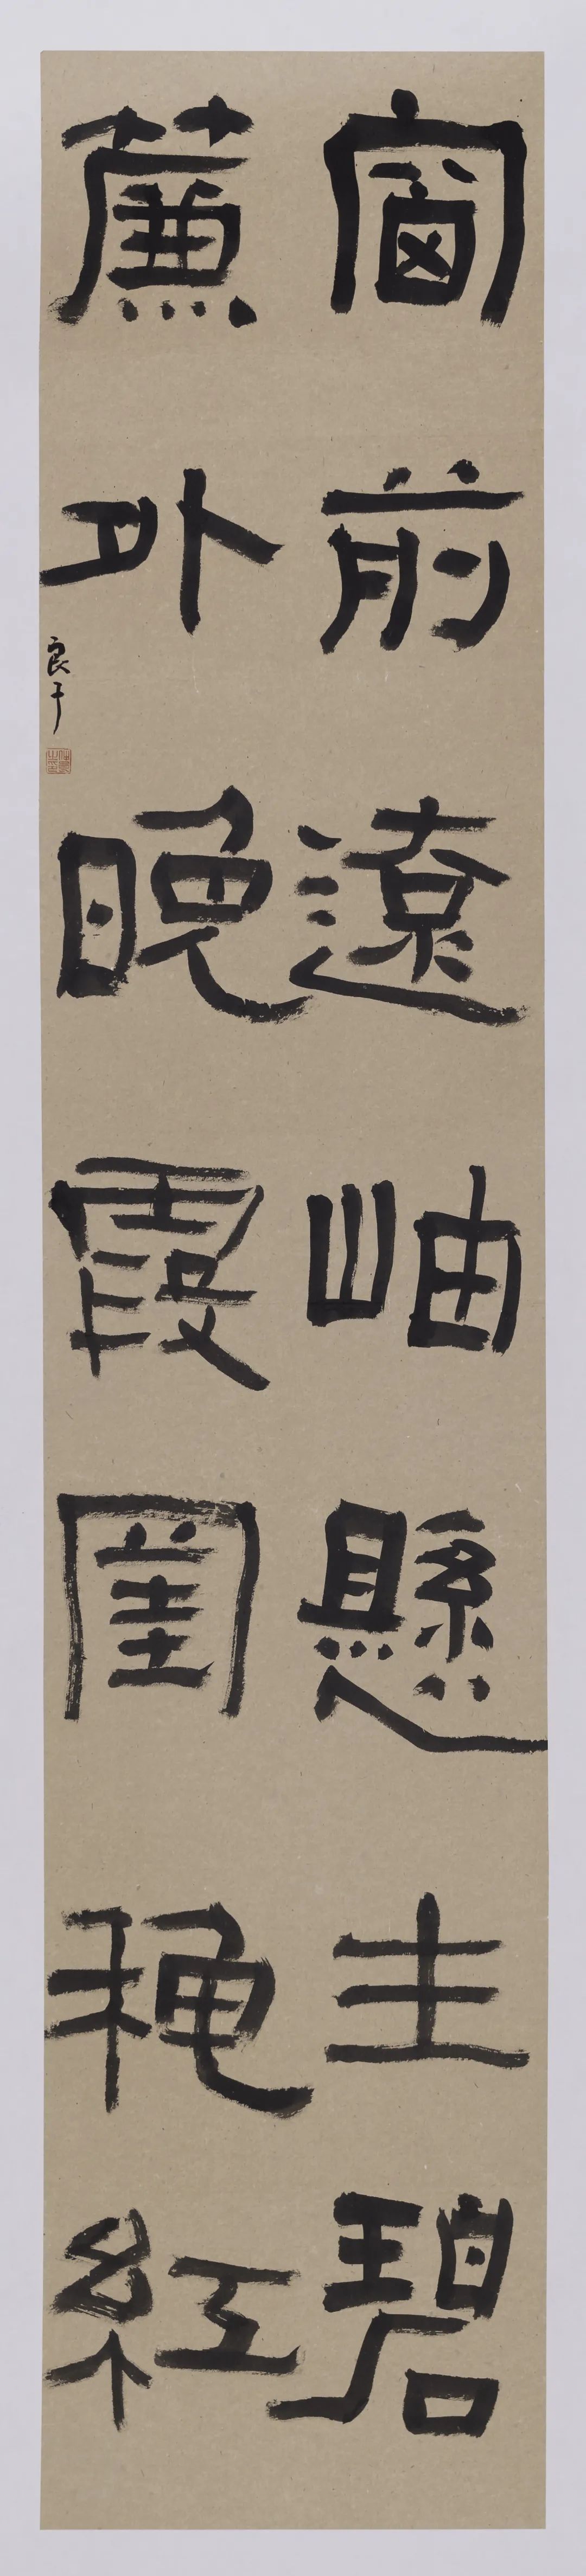 窗前遠岫懸生碧
簾外晚霞罣穐紅
良干